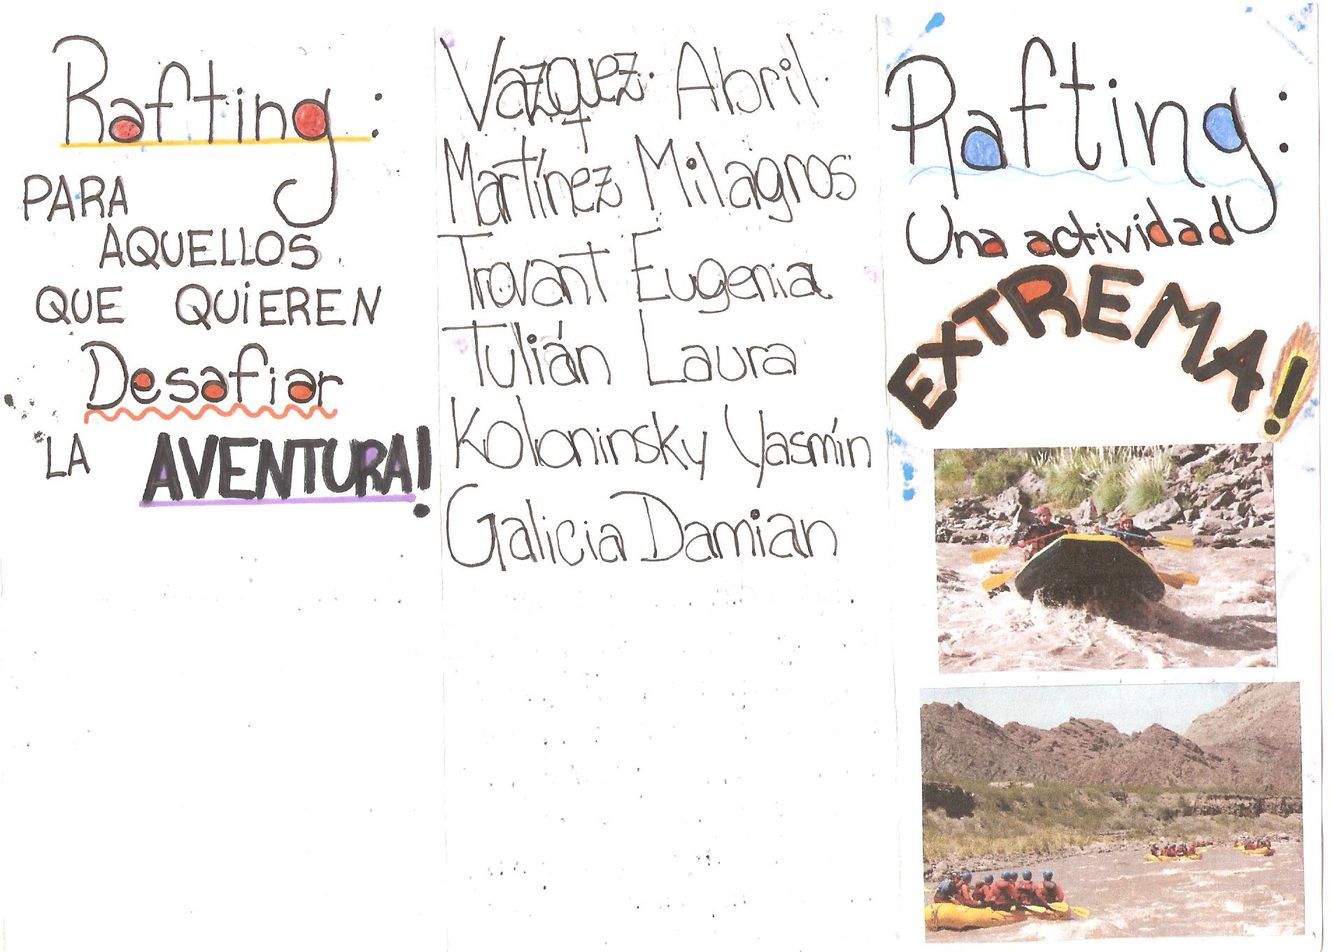 Rafting:
PARA
AQUELLOS
QUE QUIEREN
Desafiar
LA AVENTURA!
Vazquez Abril
Martínez Milagros
Trovant Eugenia
Tulián Laura
Koloninsky Yasmín
Galicia Damian
Rafting:
Una actividad
EXTREMA!